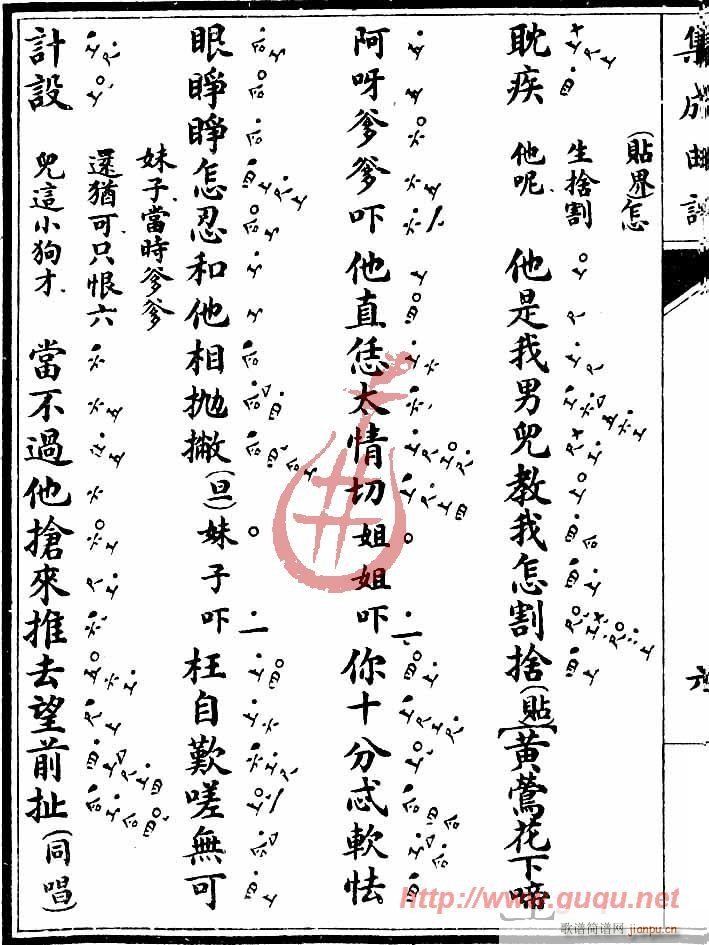 集成曲譜
(貼界)怎
生捨割
耽疾 他呢 他是我男兒教我怎割捨(貼)[黃鶯花下啼]
阿呀爹爹吓他直恁太情切姐姐吓你十分忒軟怯
眼睜睜怎忍和他相拋撇(旦)妹子吓枉自歎嗟無可
妹子當時爹爹
還猶可只恨六
兒這小狗才
計設 當不過他搶來推去望前扯(同唱)
http://www.guqu.net
歌谱简谱网 jianpu.cn